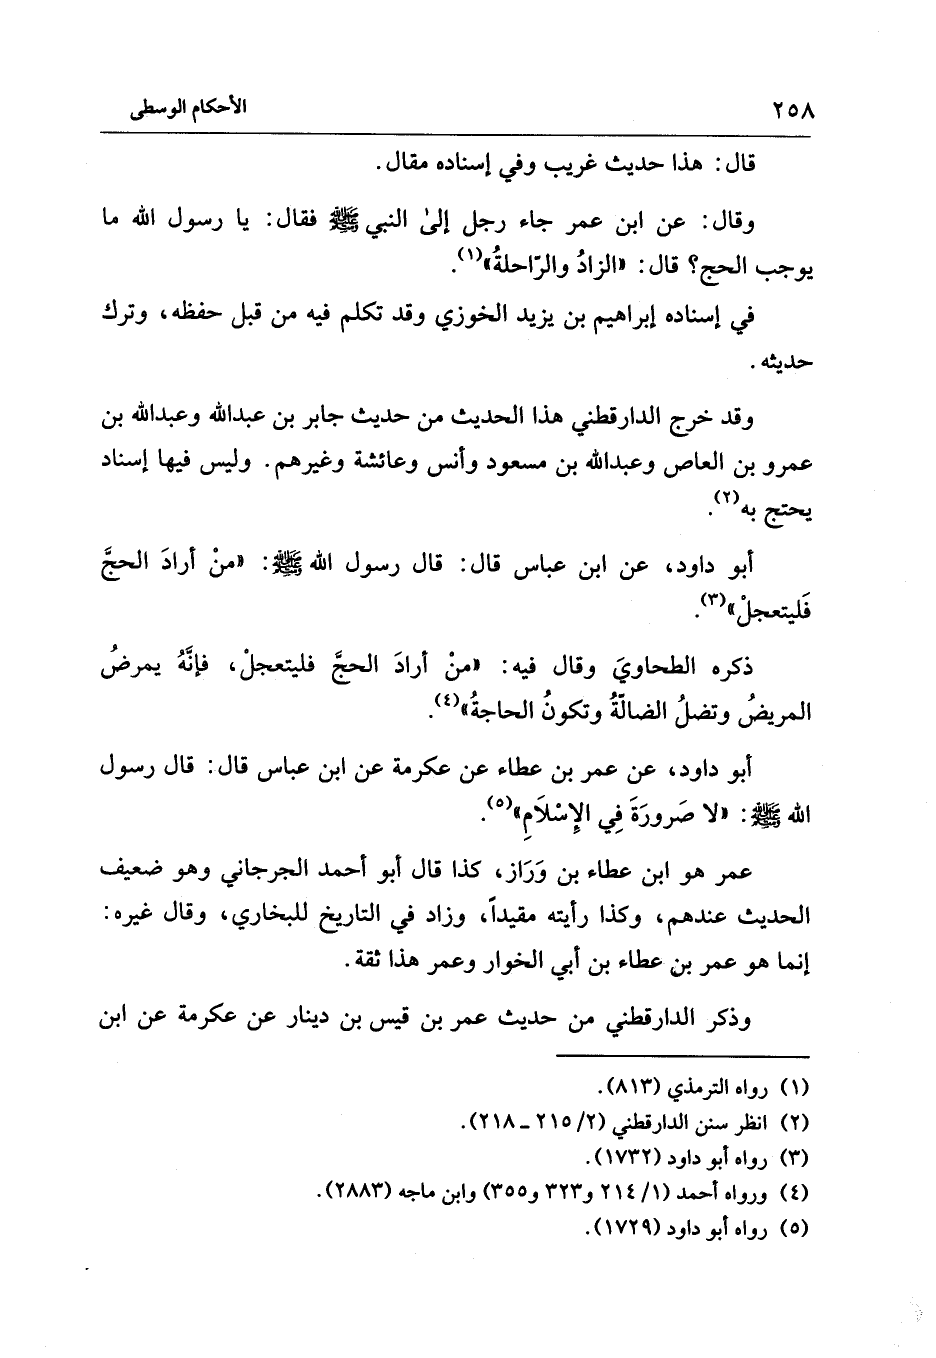 ٢٥٨ الأحكام الوسطى
قال: هذا حديث غريب وفي إسناده مقال.
وقال: عن ابن عمر جاء رجل إلىٰ النبي ﷺ فقال: يا رسول الله ما
يوجب الحج؟ قال: «الزادُ والرّاحلةُ»(١).
في إسناده إبراهيم بن يزيد الخوزي وقد تكلم فيه من قبل حفظه، وترك
حديثه.
وقد خرج الدارقطني هذا الحديث من حديث جابر بن عبدالله وعبدالله بن
عمرو بن العاص وعبدالله بن مسعود وأنس وعائشة وغيرهم. وليس فيها إسناد
يحتج به(٢).
أبو داود، عن ابن عباس قال: قال رسول الله ﷺ: «منْ أرادَ الحجَّ
فَليتعجلْ»(٣).
ذكره الطحاويَ وقال فيه: «منْ أرادَ الحجَّ فليتعجلْ، فإنَّهُ يمرضُ
المريضُ وتضلُ الضالّةُ وتكونُ الحاجةُ»(٤).
أبو داود، عن عمر بن عطاء عن عكرمة عن ابن عباس قال: قال رسول
الله ﷺ: «لا صَرورَةَ فِي الإِسْلَامِ»(٥).
عمر هو ابن عطاء بن وَرَاز، كذا قال أبو أحمد الجرجاني وهو ضعيف
الحديث عندهم، وكذا رأيته مقيداً، وزاد في التاريخ للبخاري، وقال غيره:
إنما هو عمر بن عطاء بن أبي الخوار وعمر هذا ثقة.
وذكر الدارقطني من حديث عمر بن قيس بن دينار عن عكرمة عن ابن
(١) رواه الترمذي (٨١٣).
(٢) انظر سنن الدارقطني (٢/ ٢١٥ ـ ٢١٨).
(٣) رواه أبو داود (١٧٣٢).
(٤) ورواه أحمد (١/ ٢١٤ و٣٢٣ و٣٥٥) وابن ماجه (٢٨٨٣).
(٥) رواه أبو داود (١٧٢٩).